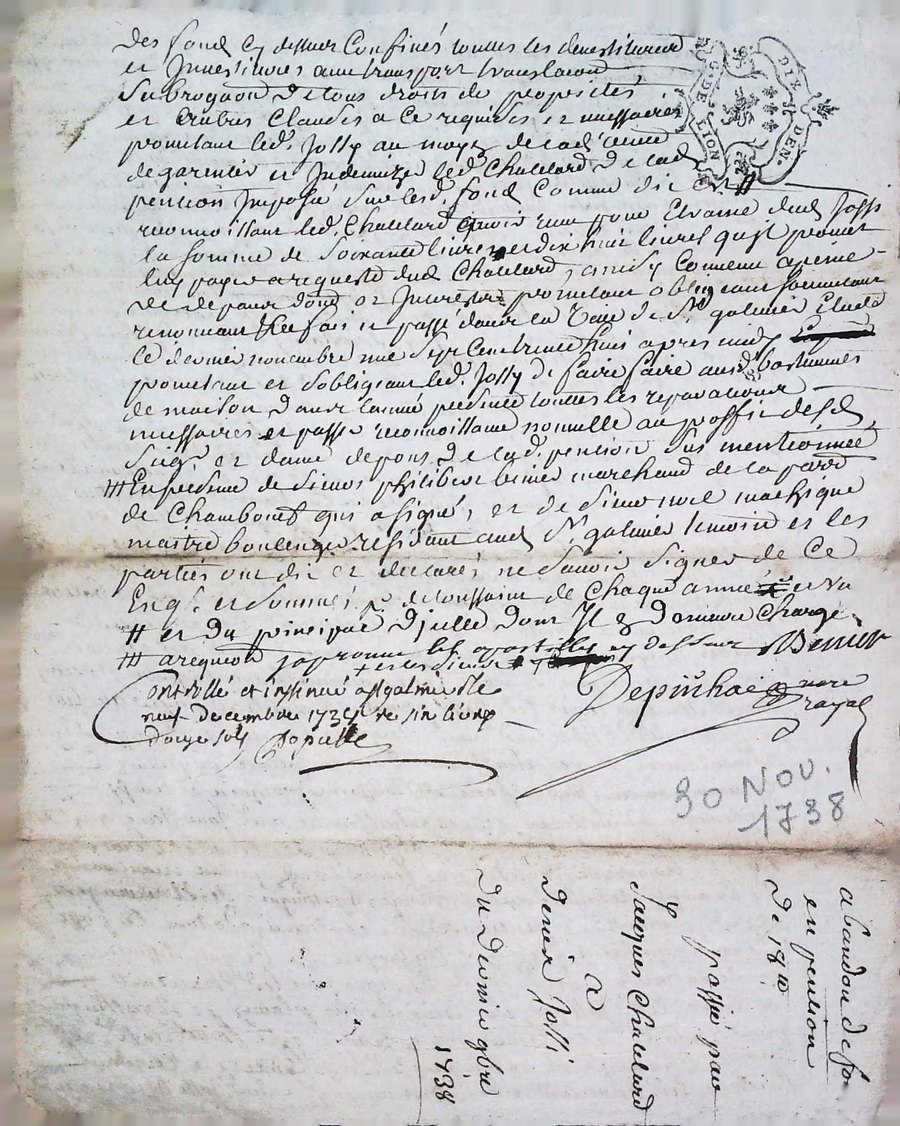 des fond cy dessus Confinés toutes les devestitures
et Investitures aux transport translaõn
Subrogaõn de tous droits de propriétés
et autres Clauses a ce requises et nessaires
prometant led. Jolly au moyen de lad.
de garentir et Indemnizer led. Chatelard de lad
pention Imposée sur led. fond Comme dit est #
reconnoissant led. Chatelard avoir reçu pour Etraine dud Jolly
la somme de Soixante livres et dix huit livres quil promet
luy payer a requeste dud Chatelard, ainsy Convenu a peine
de depans dond et Interestz prometant obligeant soumetant
renonçant &c fait et passé dans la Ville de St galmier Etude
le dernier novembre mil Sept Cent trente huit apres midy
prometant et Sobligeant led. Jolly de faire faire aud. bastiments
de maison dans lannée presente toutes les reparations
nessaires et passer reconnoissance nouvelle au proffit desd.
Seigr. et dame depons de lad. pention sus mentionnée
### En presence de Sieur philibert benier marchand de la parr
de Chambœuf qui a signé, et de Sieur noel
maitre boulenger residant aud St. galmier temoins et les
parties ont dit et declarés ne Savoir Signer de Ce
Enqs. et Sommés. de toussaint de Chaque année
# et du principal
### approuvé les apostilles cy dessus Benier
Depinhac notre Royal
Controllé et insinué a St galmier le
neuf decembre 1738 six livres
douze sols
30 NOV.
1738
abandon de fo
en pention
de 18
passé par
Jacques Chatelard
a
Denis Jolli
du Dernier 9bre
1738
DIX DEN.
G. DE LION